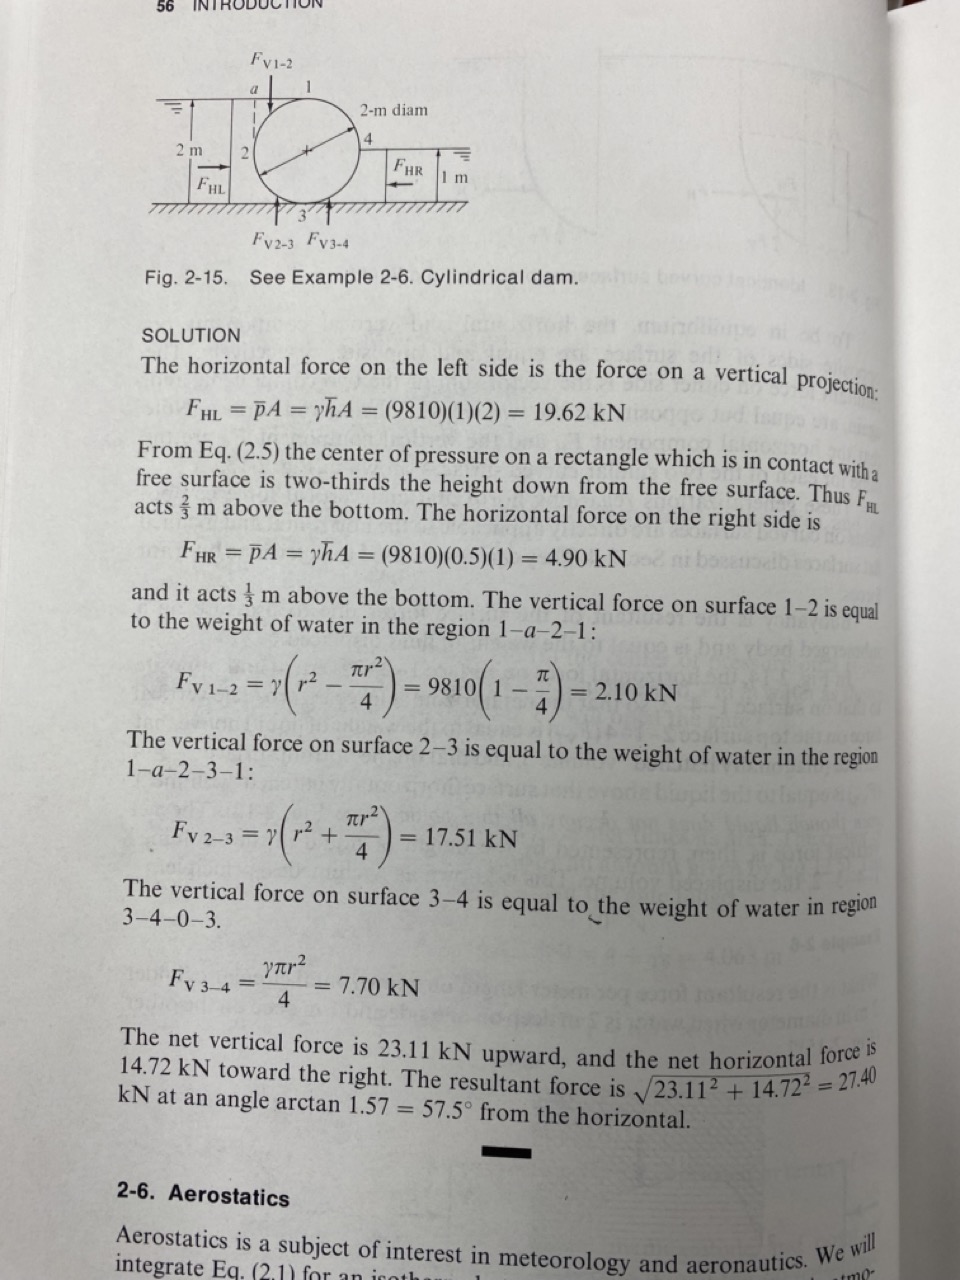 56 INTRODUCTION
F_V1-2
a 1
2-m diam
2 m 2 4
F_HL F_HR 1 m
3
F_V2-3 F_V3-4
Fig. 2-15. See Example 2-6. Cylindrical dam.
SOLUTION
The horizontal force on the left side is the force on a vertical projection:
F_HL = p̄A = γh̄A = (9810)(1)(2) = 19.62 kN
From Eq. (2.5) the center of pressure on a rectangle which is in contact with a
free surface is two-thirds the height down from the free surface. Thus F_HL
acts 2/3 m above the bottom. The horizontal force on the right side is
F_HR = p̄A = γh̄A = (9810)(0.5)(1) = 4.90 kN
and it acts 1/3 m above the bottom. The vertical force on surface 1–2 is equal
to the weight of water in the region 1–a–2–1:
F_V 1–2 = γ(r² − πr²/4) = 9810(1 − π/4) = 2.10 kN
The vertical force on surface 2–3 is equal to the weight of water in the region
1–a–2–3–1:
F_V 2–3 = γ(r² + πr²/4) = 17.51 kN
The vertical force on surface 3–4 is equal to the weight of water in region
3–4–0–3.
F_V 3–4 = γπr²/4 = 7.70 kN
The net vertical force is 23.11 kN upward, and the net horizontal force is
14.72 kN toward the right. The resultant force is √(23.11² + 14.72²) = 27.40
kN at an angle arctan 1.57 = 57.5° from the horizontal.
2-6. Aerostatics
Aerostatics is a subject of interest in meteorology and aeronautics. We will
integrate Eq. (2.1) for an